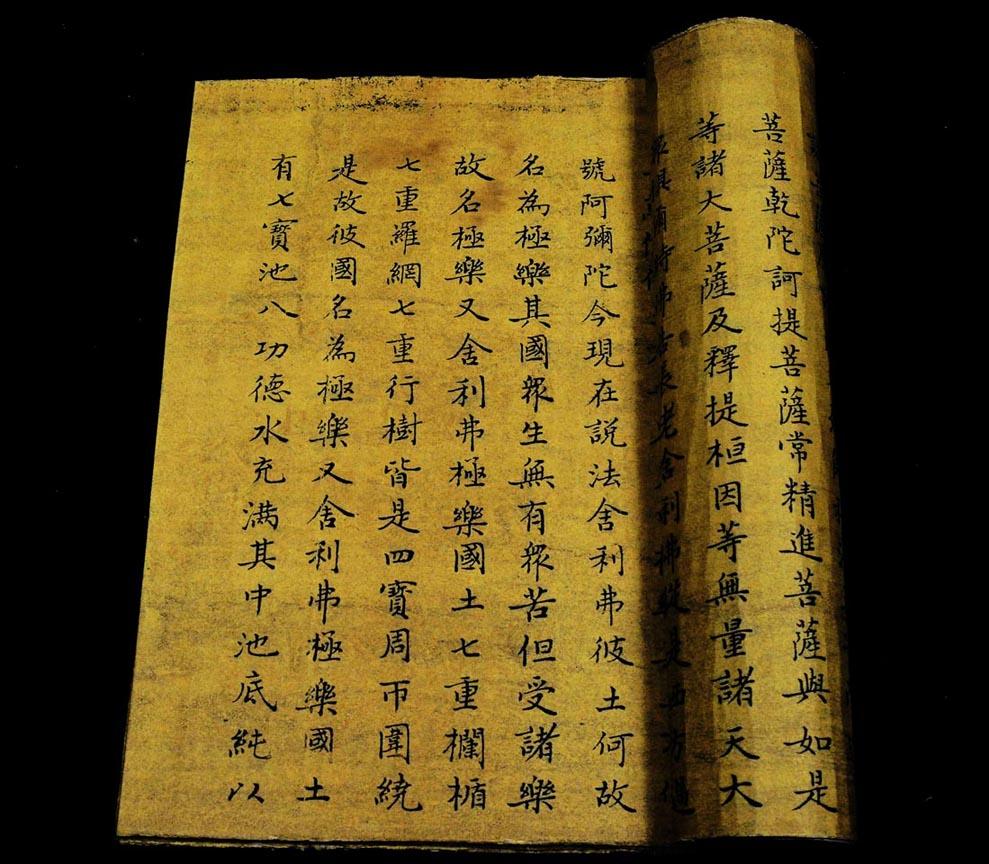 菩薩乾陀訶提菩薩常精進菩薩與如是
等諸大菩薩及釋提桓因等無量諸天大
佛告長老舍利弗從是西方過
號阿彌陀今現在說法舍利弗彼土何故
名為極樂其國眾生無有眾苦但受諸樂
故名極樂又舍利弗極樂國土七重欄楯
七重羅網七重行樹皆是四寶周帀圍繞
是故彼國名為極樂又舍利弗極樂國土
有七寶池八功德水充滿其中池底純以